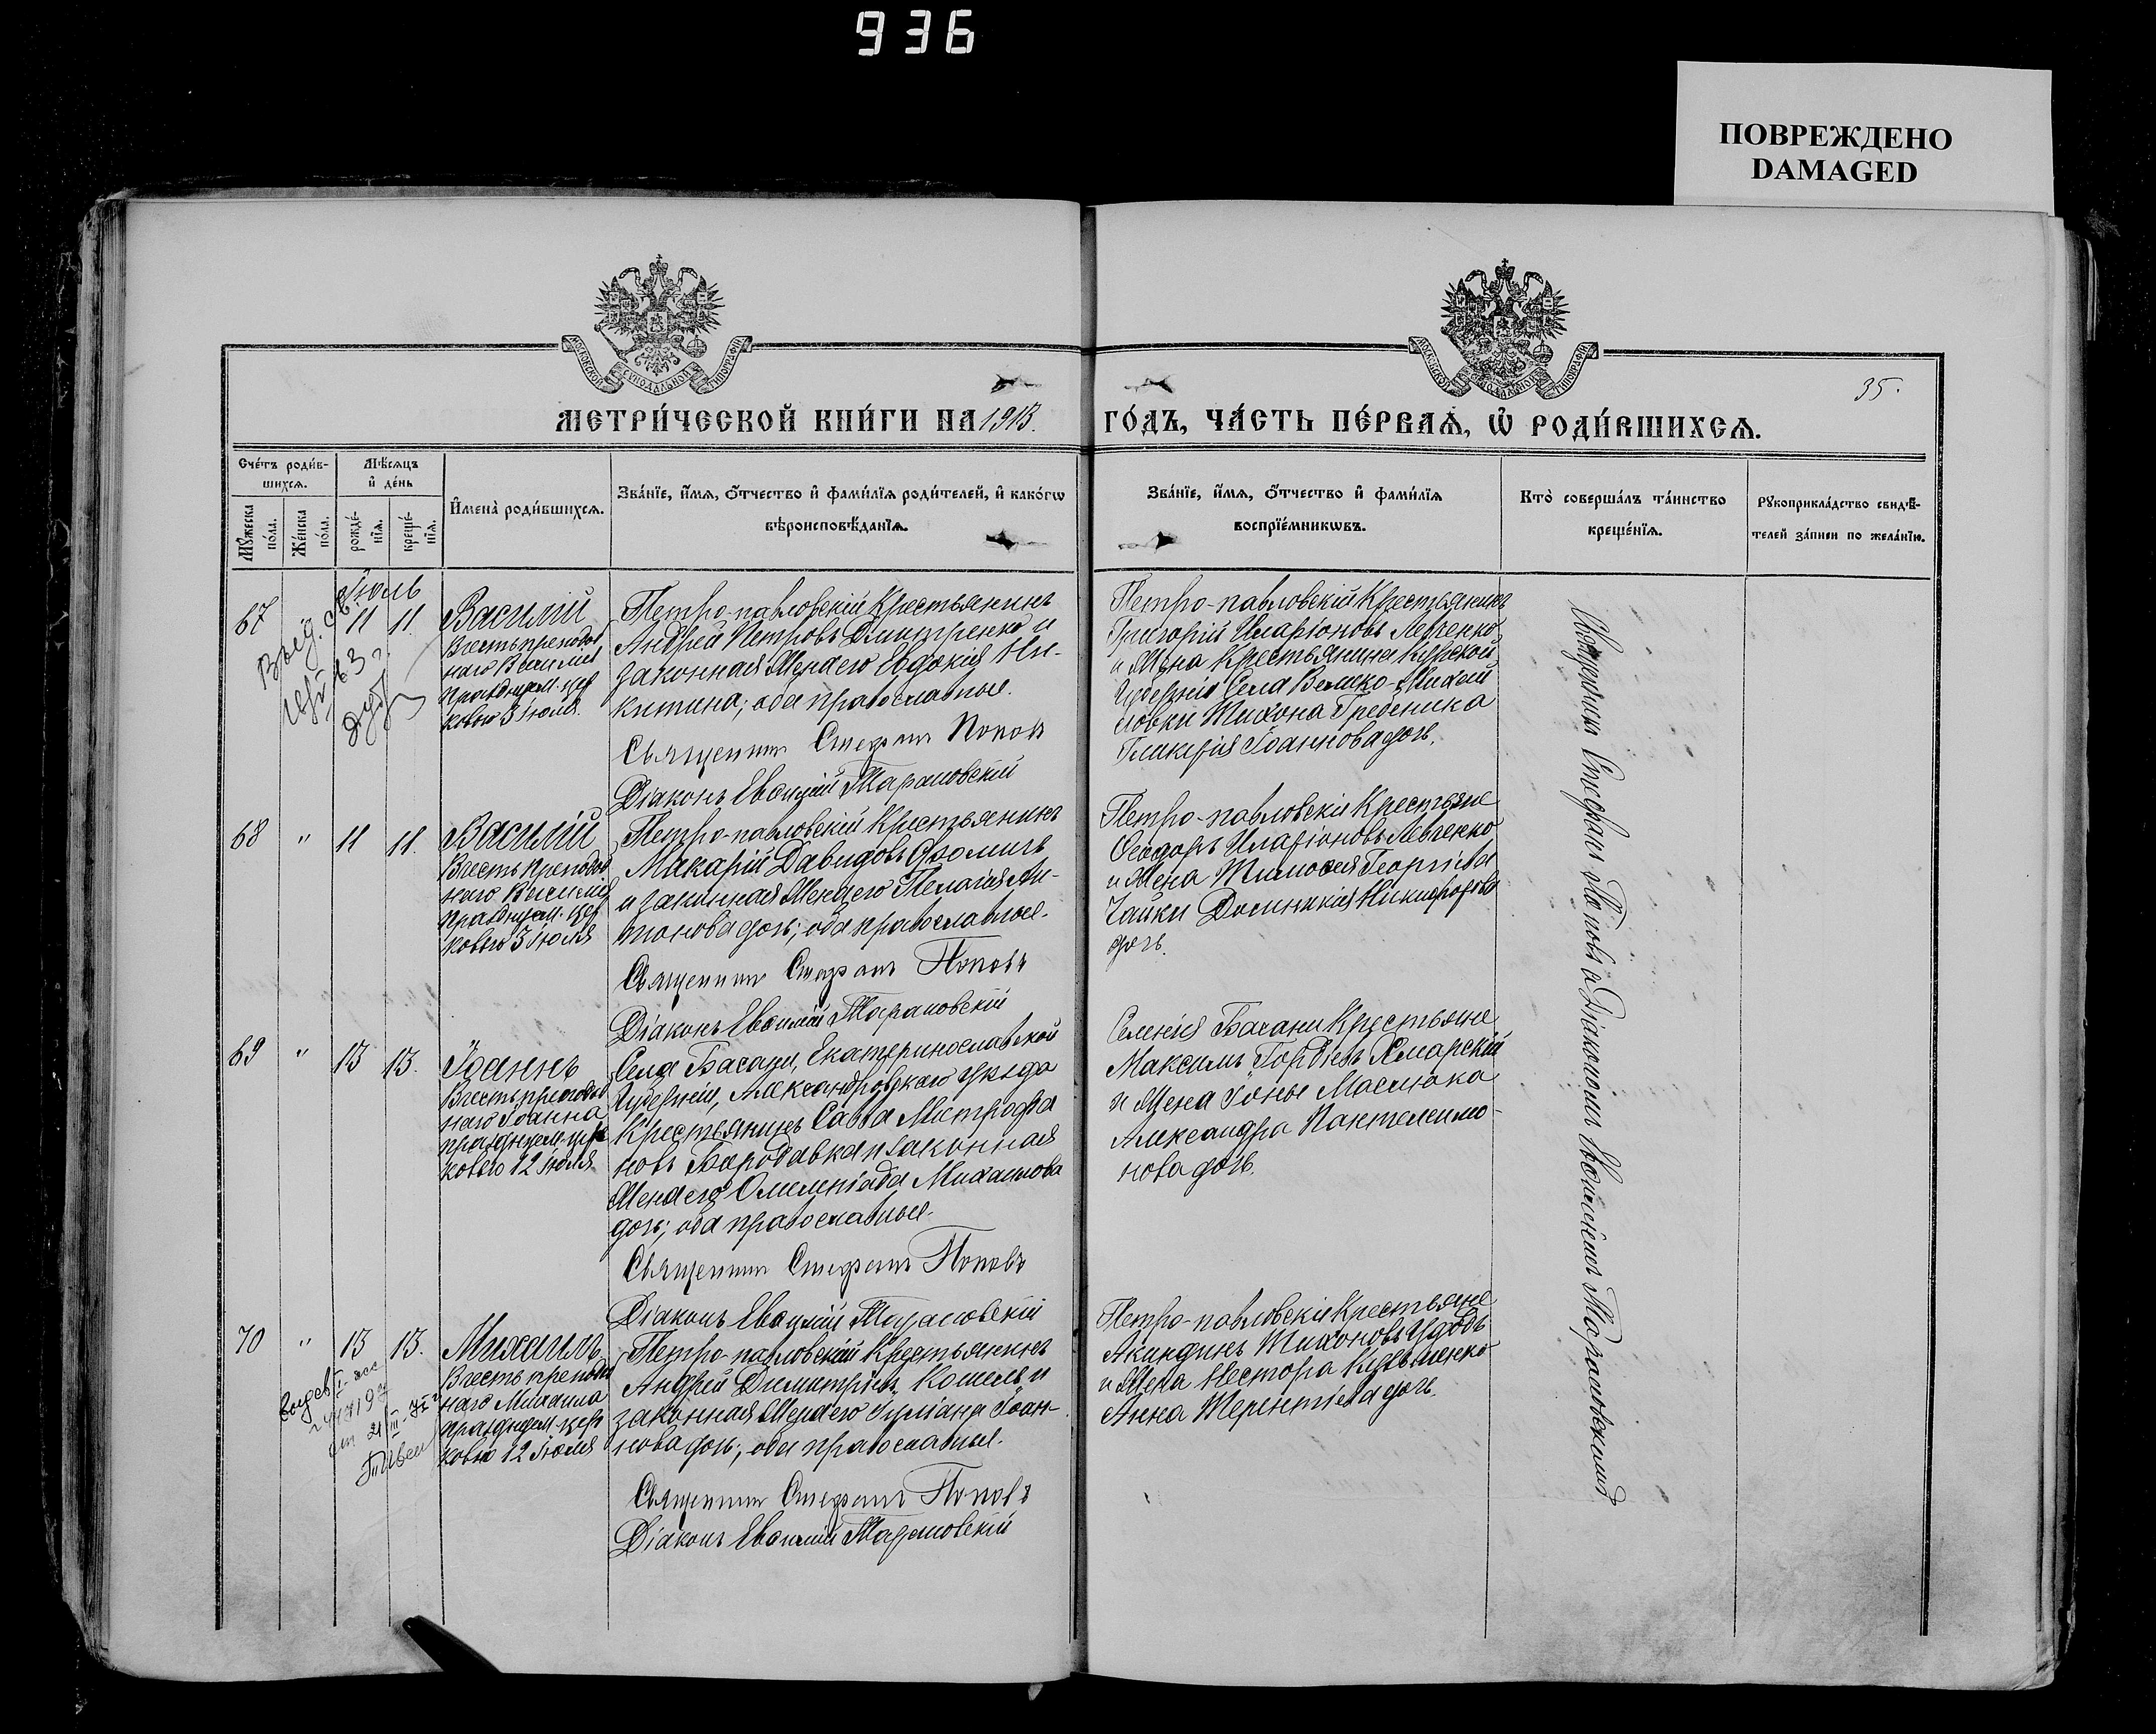 936
ПОВРЕЖДЕНО
DAMAGED
МОСКОВСКОЙ СѴНОДАЛЬНОЙ ТИПОГРАФІИ
МОСКОВСКОЙ СѴНОДАЛЬНОЙ ТИПОГРАФІИ
35.
МЕТРИ́ЧЕСКОЙ КНИ́ГИ НА 1913.
ГО́ДЪ, ЧА́СТЬ ПЕ́РВАѦ, Ѡ РОДИ́ВШИХСѦ.
Сче́тъ роди́в-
шихсѧ.
Мꙋжеска по́ла.
Же́нска по́ла.
Мѣ́сѧцъ
и́ де́нь
рожде́-
нїѧ.
креще́-
нїѧ.
И҆мена̀ роди́вшихсѧ.
Зва́нїе, и҆́мѧ, ѻ҆́тчество и҆ фами́лїѧ роди́телей, и҆ како́гѡ
вѣроисповѣ́данїѧ.
Зва́нїе, и҆́мѧ, ѻ҆́тчество и҆ фами́лїѧ
воспрїе́мникѡвъ.
Кто̀ соверша́лъ та́инство
креще́нїѧ.
Рꙋкоприкла́дство свидѣ́-
телей за́писи по жела́нїю.
Іюль
67
11 11
Василій
Въ честь преподоб
наго Василія
празднуем. цер
ковью 3 Іюля.
Петро-павловскій Крестьянинъ
Андрей Петровъ Дмитренко и
законная Жена его Евдокія Ни-
китина; оба православные.
Священникъ Стефанъ Поповъ
Діаконъ Евѳимій Тарановскій
Петро-павловскій Крестьянинъ
Григорій Иларіоновъ Левченко
и Жена Крестьянина Курской
Губерніи Села Велико-Михай
ловки Тихона Гребеника
Гликерія Іоаннова дочь.
68 " 11 11.
Василій
Въ честь преподоб
наго Василія
празднуем. цер
ковью 3 Іюля
Петро-павловскій Крестьянинъ
Макарій Давидовъ Фомичъ
и законная Жена его Пелагія Ан-
тонова дочь; оба православные.
Священникъ Стефанъ Поповъ
Діаконъ Евѳимій Тарановскій
Петро-павловскіе Крестьяне
Ѳеодоръ Иларіоновъ Левченко
и Жена Тимоѳея Георгіева
Чайки Домникія Никифорова
дочь.
69 " 13 13.
Іоаннъ
Въ честь преподоб
наго Іоанна
празднуем. цер
ковью 12 Іюля
Села Басани, Екатеринославской
Губерніи, Александровскаго уѣзда
Крестьянинъ Савва Митрофа
новъ Бородавка и законная
Жена его Олимпіада Михаилова
дочь; оба православные.
Священникъ Стефанъ Поповъ
Діаконъ Евѳимій Тарановскій
Селенія Басани Крестьяне
Максимъ Гордіевъ
и Жена Маслюка
Александра Пантелеимо-
нова дочь.
70 " 13 13.
Михаилъ
Въ честь преподоб
наго Михаила
празднуем. цер
ковью 12 Іюля
Петро-павловскій Крестьянинъ
Андрей Димитріевъ Кошель и
законная Жена его Іуліана Іоан-
нова дочь; оба православные.
Священникъ Стефанъ Поповъ
Діаконъ Евѳимій Тарановскій
Петро-павловскіе Крестьяне
Акиндинъ Тихоновъ Удодъ
и Жена Нестора Кузьменко
Анна Терентіева дочь.
Священникъ Стефанъ Поповъ съ Діакономъ Евѳиміемъ Тарановскимъ